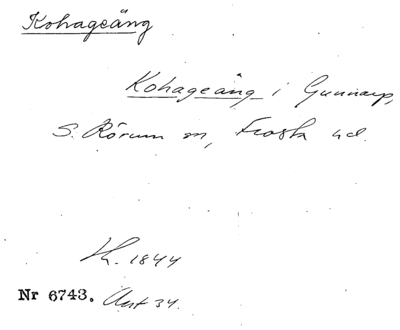 Kohageäng
Kohageäng i Gunnarp,
S. Rörum sn, Frosta hd.
Kh. 1844
Nr 6743. Akt 34.